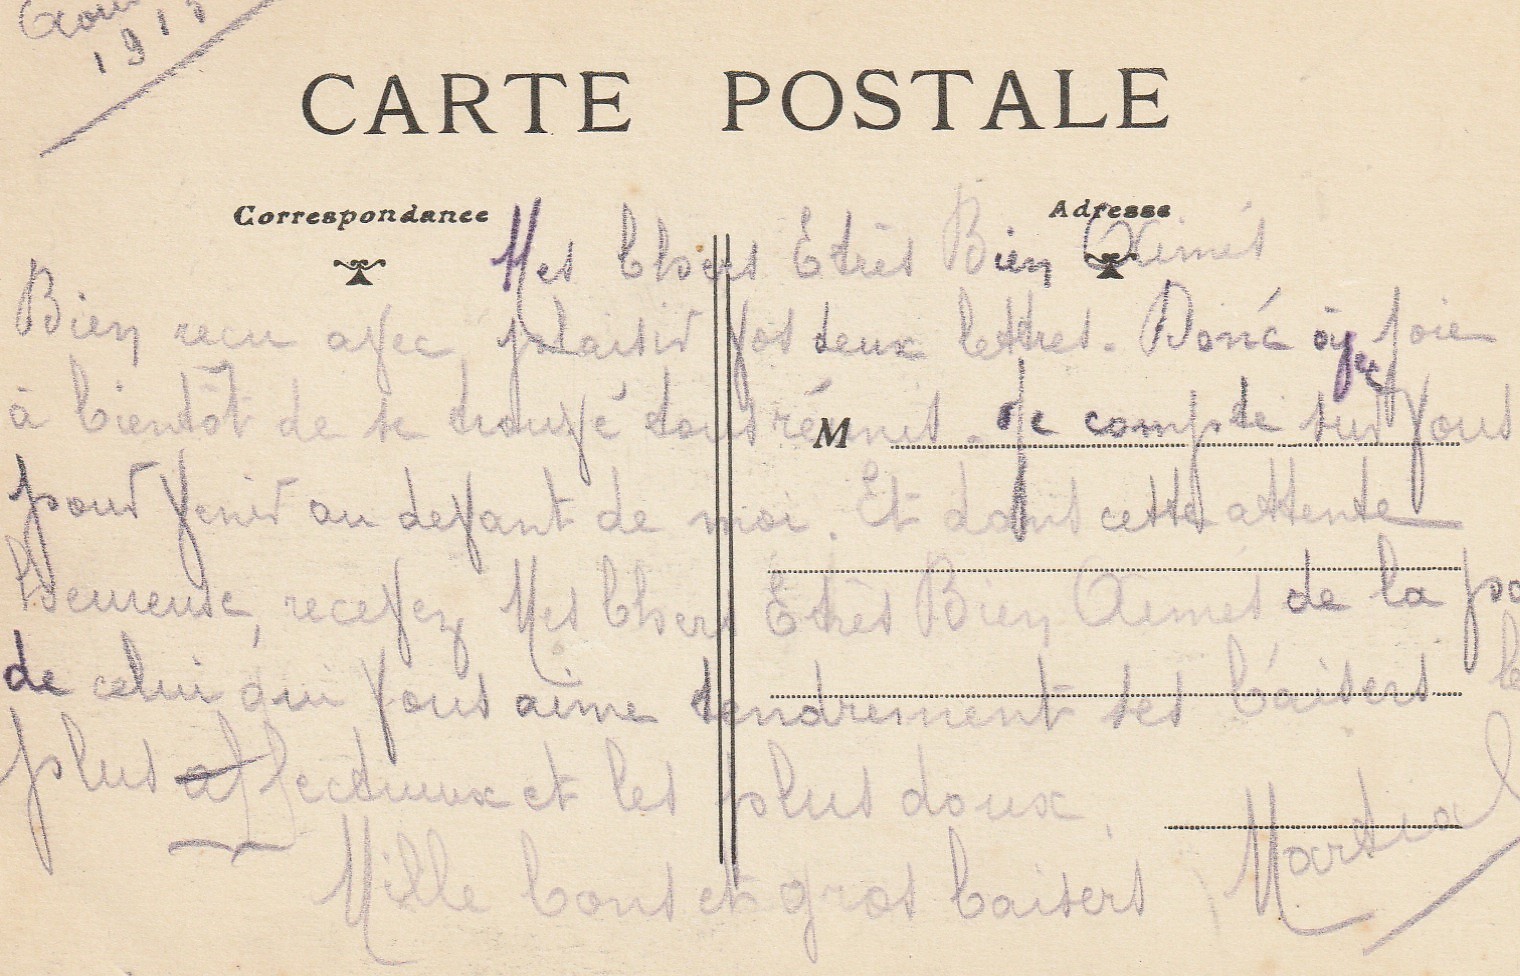 Août
191
CARTE POSTALE
Correspondance
Adresse
Mes Chers Etrès Bien Aimés
Bien reçu avec plaisir vos deux lettres. Donc avec joie
à bientôt de se trouvé tous réunis. Je compte sur vous
M
pour venir au devant de moi. Et dans cette attente
heureuse, recevez Mes Chers Etrès Bien Aimés de la pa
de celui qui vous aime tendrement ses baisers le
plus affectueux et les plus doux.
Mille bons et gros baisers
Martial